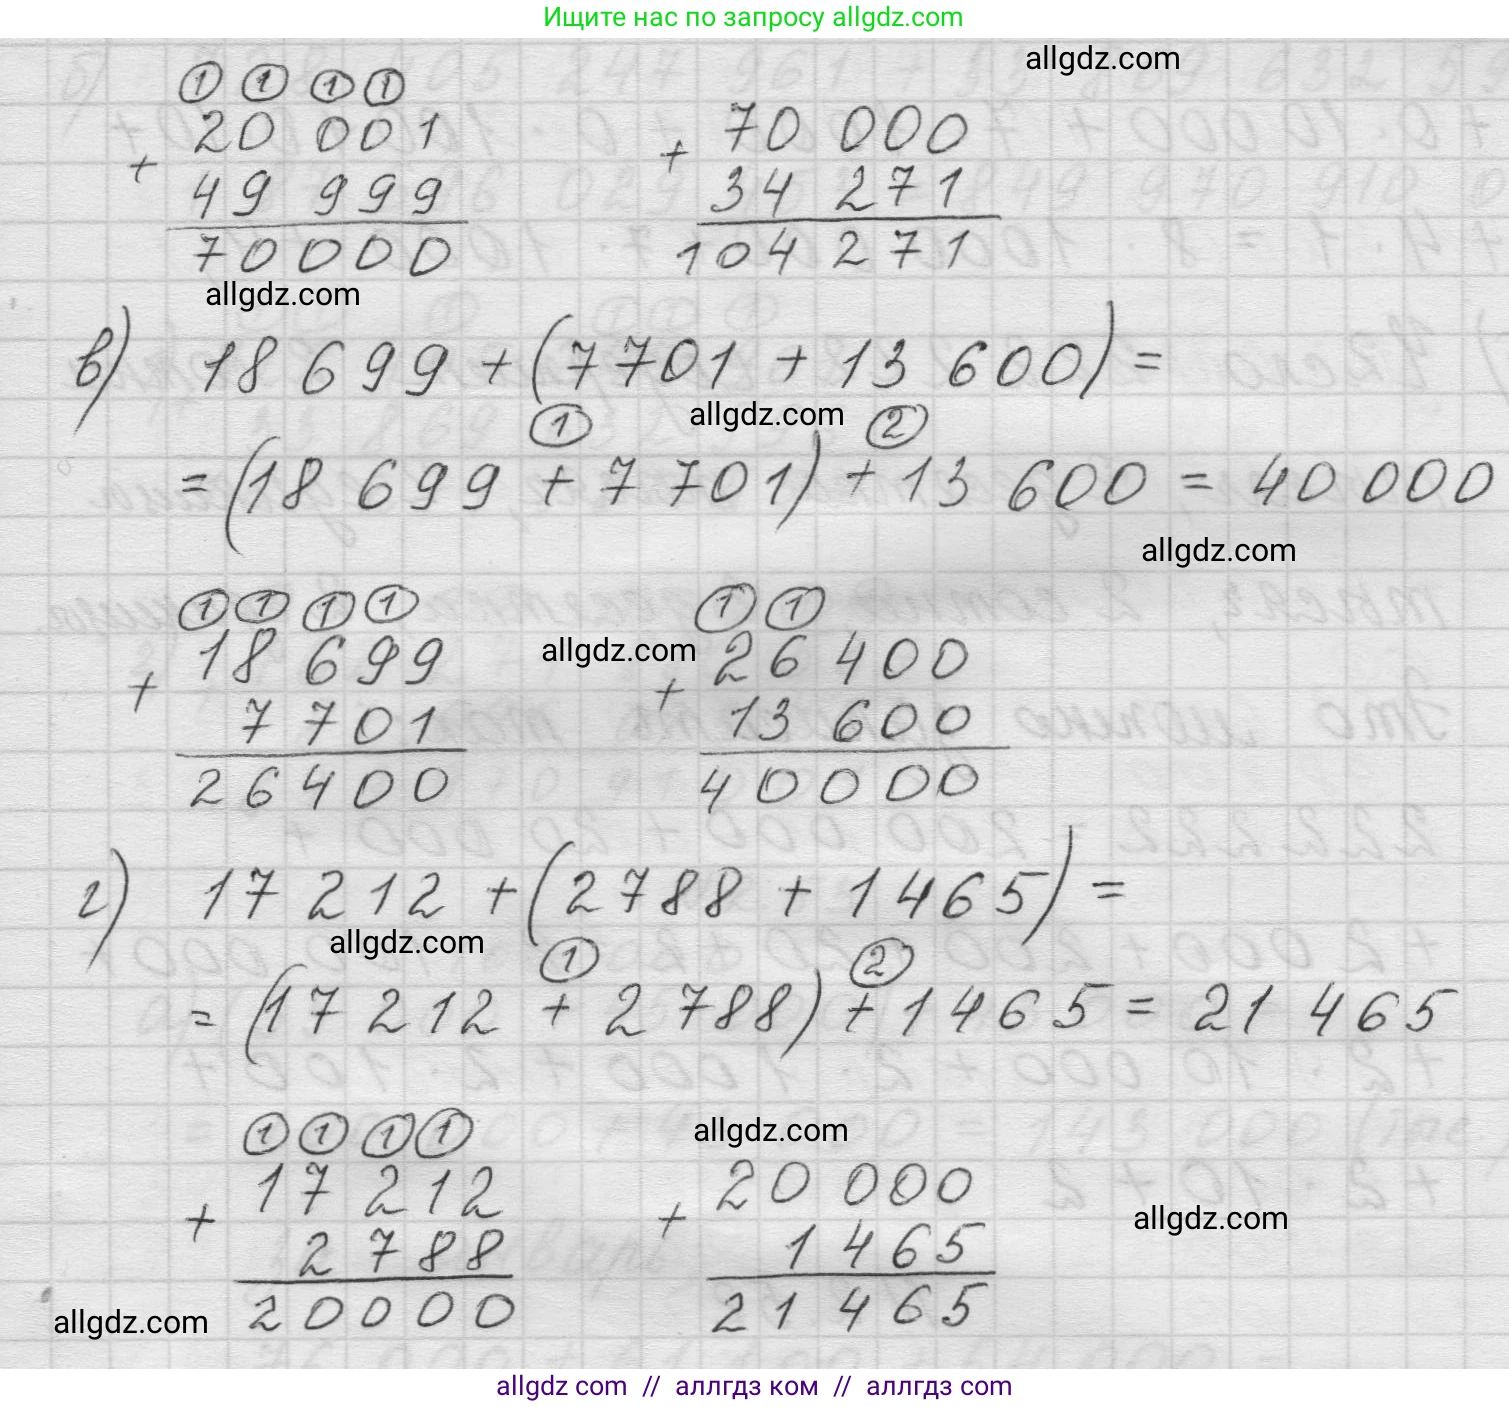 Ищите нас по запросу allgdz.com
allgdz.com
1 1 1 1
20 001
+
49 999
70000
70 000
+
34 271
104 271
allgdz.com
в) 18 699 + (7701 + 13 600) =
allgdz.com
1 2
= (18 699 + 7 701) + 13 600 = 40 000
allgdz.com
1 1 1 1
18 699
+
7 701
26400
allgdz.com
1 1
26 400
+
13 600
40000
г) 17 212 + (2788 + 1465) =
allgdz.com
1 2
= (17 212 + 2 788) + 1465 = 21 465
1 1 1 1
17 212
+
2 788
20000
allgdz.com
20 000
+
1 465
21 465
allgdz.com
allgdz.com
allgdz com // аллгдз ком // аллгдз com